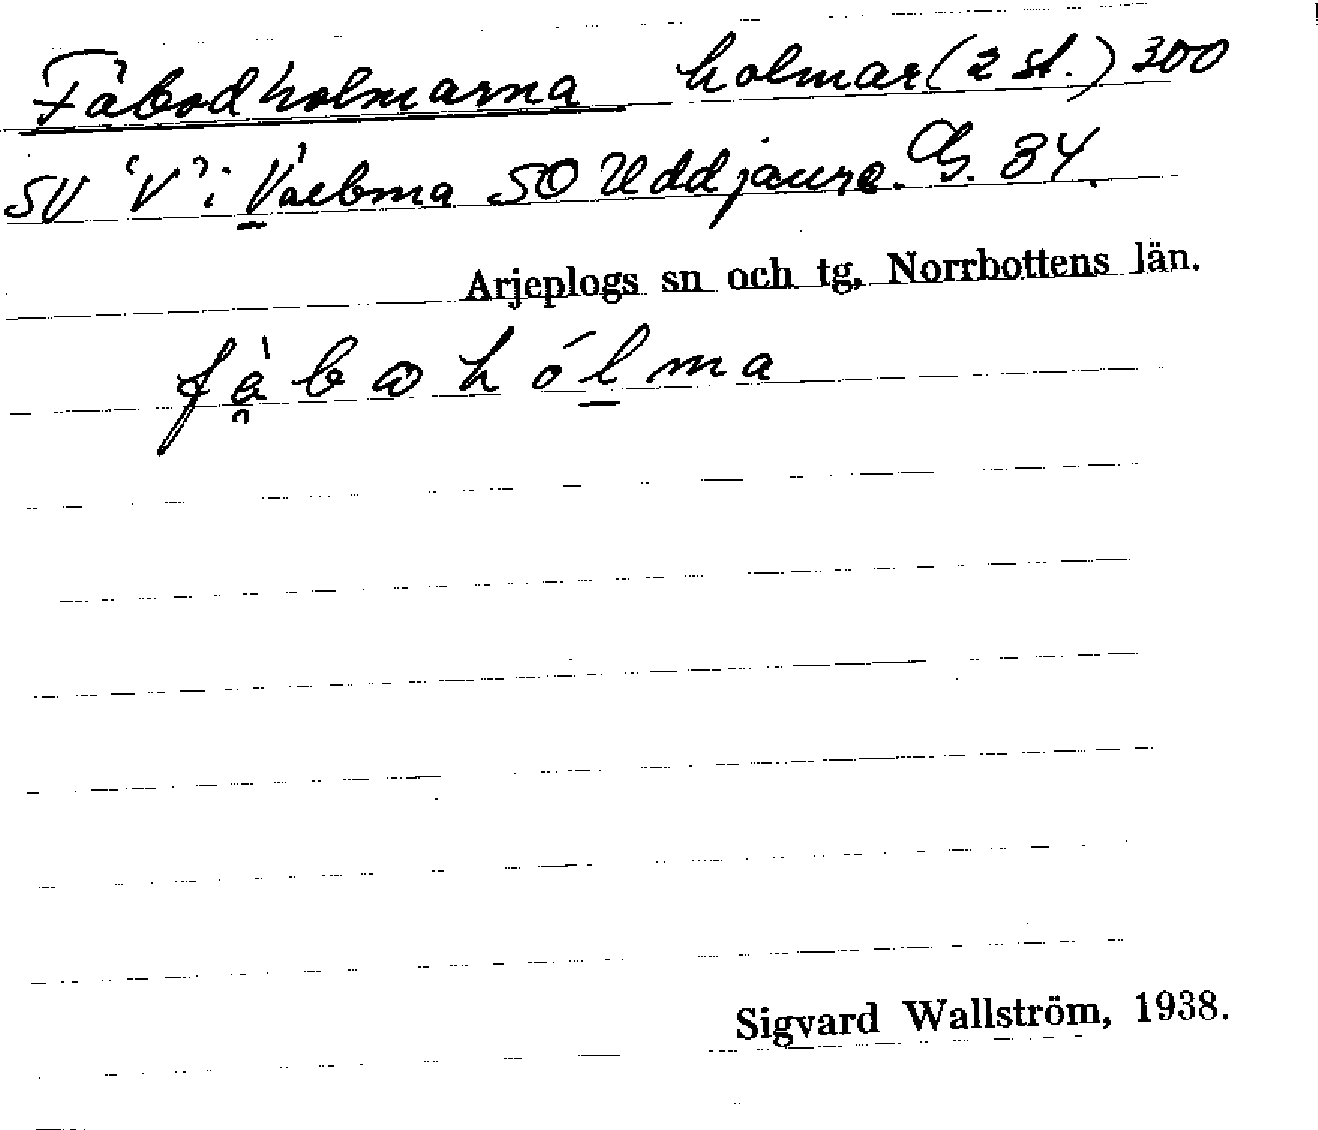 Fäbodholmarna holmar (2 st.) 300
SV "V" i Váebma SO Uddjaure. Gg. 34.
Arjeplogs sn och tg, Norrbottens län.
fàbɷhólma
Sigvard Wallström, 1938.